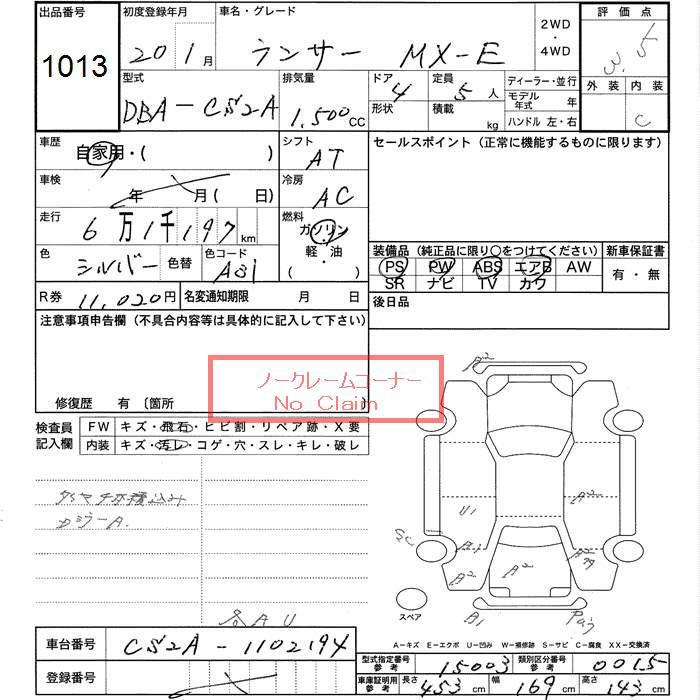 出品番号 初度登録年月 車名・グレード 2WD・4WD 評価点
1013 20 1月 ランサー MX-E 3.5
型式 排気量 ドア 定員 ディーラー・並行 外装 内装
DBA-CS2A 1,500cc 4 5人 モデル年式 年 C
形状 積載 kg ハンドル 左・右
車歴 自家用・( ) シフト AT セールスポイント (正常に機能するものに限ります)
車検 年 月( 日) 冷房 AC
走行 6万1千197km 燃料 ガソリン・軽・油・( )
色 シルバー 色替 色コード A31
装備品 (純正品に限り○をつけてください) 新車保証書
PS PW ABS エアB AW 有・無
SR ナビ TV カワ
R券 11,020円 名変通知期限 月 日 後日品
注意事項申告欄 (不具合内容等は具体的に記入して下さい)
ノークレームコーナー
No Claim
修復歴 有 〔箇所 〕
検査員記入欄 FW キズ・飛石・ヒビ割・リペア跡・X要
内装 キズ・汚レ・コゲ・穴・スレ・キレ・破レ
A2
U1 A2
SC B1 A2
A2 A2
B1
スペア
各AU
A-キズ E-エクボ U-凹み W-補修跡 S-サビ C-腐食 XX-交換済
車台番号 CS2A-1102194
型式指定番号 参考 15003 類別区分番号 参考 0015
登録番号
車庫証明用 参考 長さ 453cm 幅 169cm 高さ 143cm